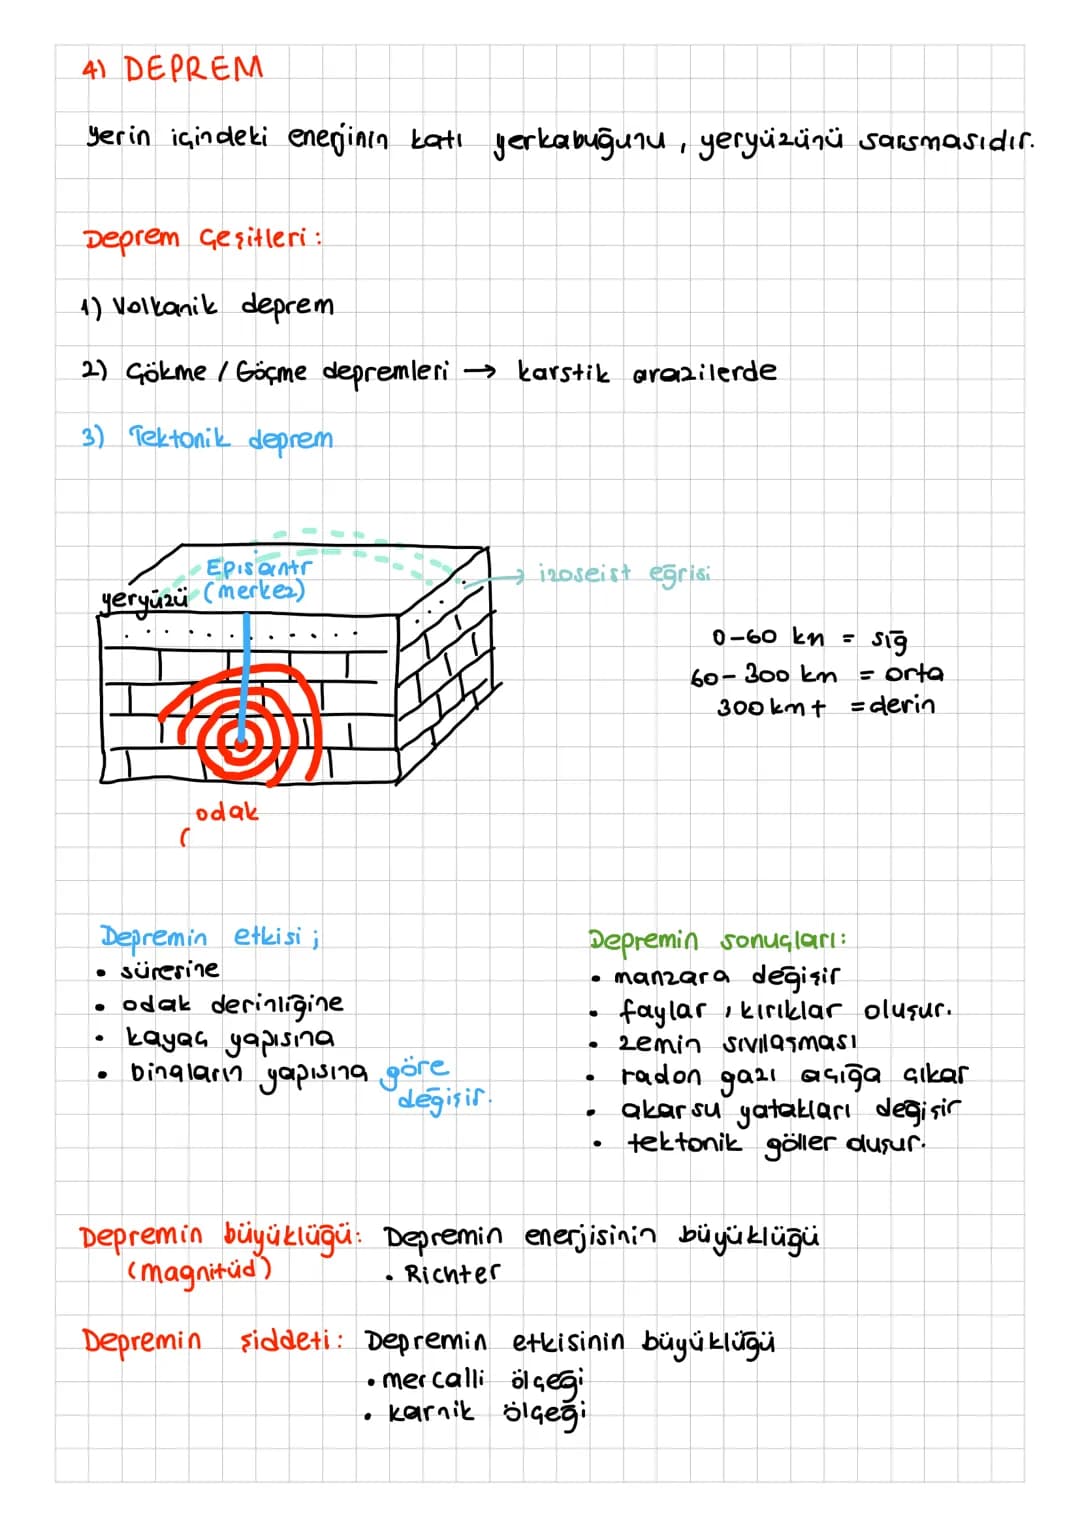 4) DEPREM
Yerin içindeki enerjinin katı yerkabuğunu, yeryüzünü sarsmasıdır.
Deprem Çeşitleri:
1) Volkanik deprem
2) Çökme / Göçme depremleri → karstik arazilerde
3) Tektonik deprem
Episantr
(merkez)
yeryüzü
→ izoseist eğrisi
0-60 km = sığ
60-300 km = orta
300 km + = derin
odak
Depremin etkisi;
• süresine
• odak derinliğine
• kayaç yapısına
• binaların yapısına göre
değişir.
Depremin sonuçları:
• manzara değişir
• faylar, kırıklar oluşur.
• zemin sıvılaşması
• radon gazı açığa çıkar
• akarsu yatakları değişir
• tektonik göller oluşur.
Depremin büyüklüğü: Depremin enerjisinin büyüklüğü
(magnitüd)
• Richter
Depremin şiddeti: Depremin etkisinin büyüklüğü
• mercalli ölçeği
• karnik ölçeği